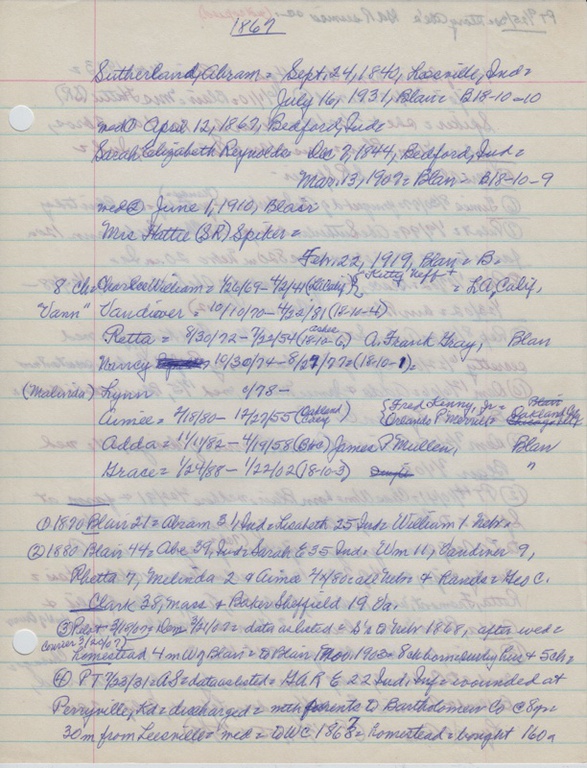 1867
Sutherland, Abram = Sept. 24, 1840, Leesville, Ind =
July 16, 1931, Blair = B18-10-10
med① April 12, 1867, Bedford, Ind =
Sarah Elizabeth Reynolds = Dec 7, 1844, Bedford, Ind =
Mar. 13, 1907 = Blair B18-10-9
med② June 1, 1910, Blair
Mrs Hattie (SR) Spiker =
Feb. 22, 1919, Blair = B.
8 ch = Charles William = 1/26/69 - 4/2/41 Kitty Neff + = LA, Calif,
"Vann" Vandiver = 10/10/70 - 4/22/81 (18-10-4)
Retta = 8/30/72 - 7/22/54 (ashes 18-10-6) A. Frank Gray, Blair
Nancy 10/30/74 - 8/27/77 = (18-10-1) =
(Malinda) Lynn c/78 -
Aimee = 2/18/80 - 12/27/55 (Oakland Calif) { Fred Kenny, Jr = Blair
Orlando P Merrill = Oakland
Adda = 11/11/82 - 4/19/58 (B6c) James P Mullen, Blair
Grace = 1/24/88 - 1/22/02 (18-10-3) "
① 1870 Blair 21 = Abram 31 Ind = Lisabeth 25 Ind = William 1 Nebr =
② 1880 Blair 44 = Abe 39, Ind = Sarah E 35 Ind = Wm 11, Vandiver 9,
Rhetta 7, Melinda 2 & Aimee 4/80 = all Nebr & Rands = Geo C.
Clark 38, Mass & Baker Sheffield 19 Va.
③ Pilot 3/18/07 = data as listed = S's to Nebr 1868, after wed =
Courier 3/20/07
Homestead 4 m W of Blair = to Blair Nov 1903 = 8 ch born only live & 5 ch =
④ PT 7/23/31 = AS = data as listed = GAR E 22 Ind, Inf = wounded at
Perryville, Kd = discharged = mth parents to Bartholomew Co @ 8 yr =
30 m from Leesville = med = to WC 1867 = homestead = bought 160a